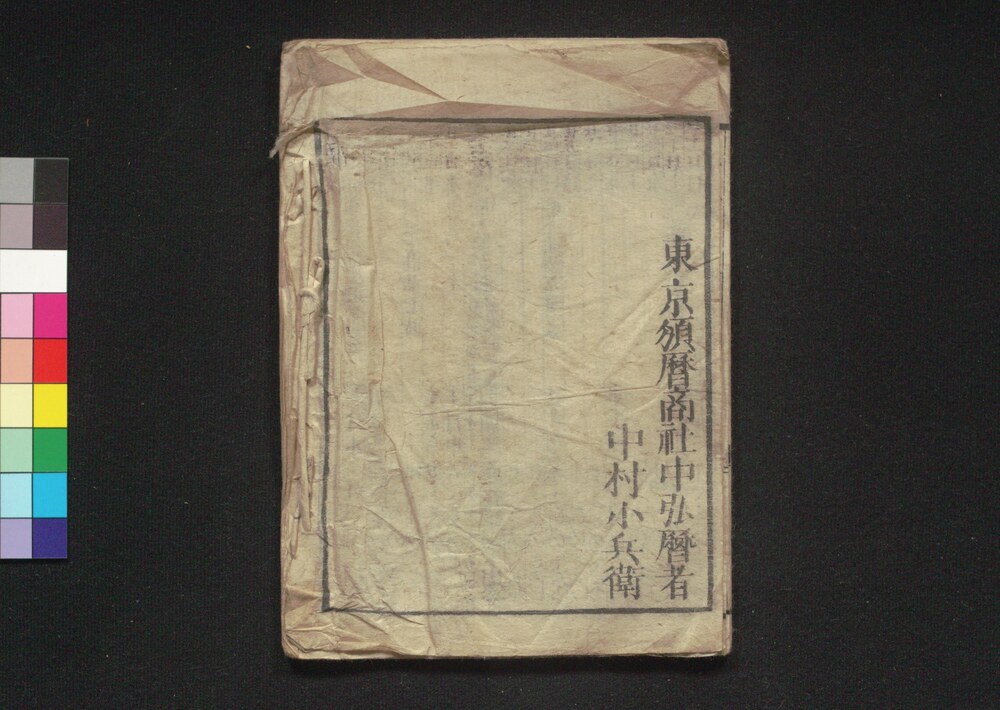 東京頒暦商社中弘暦者
中村小兵衛